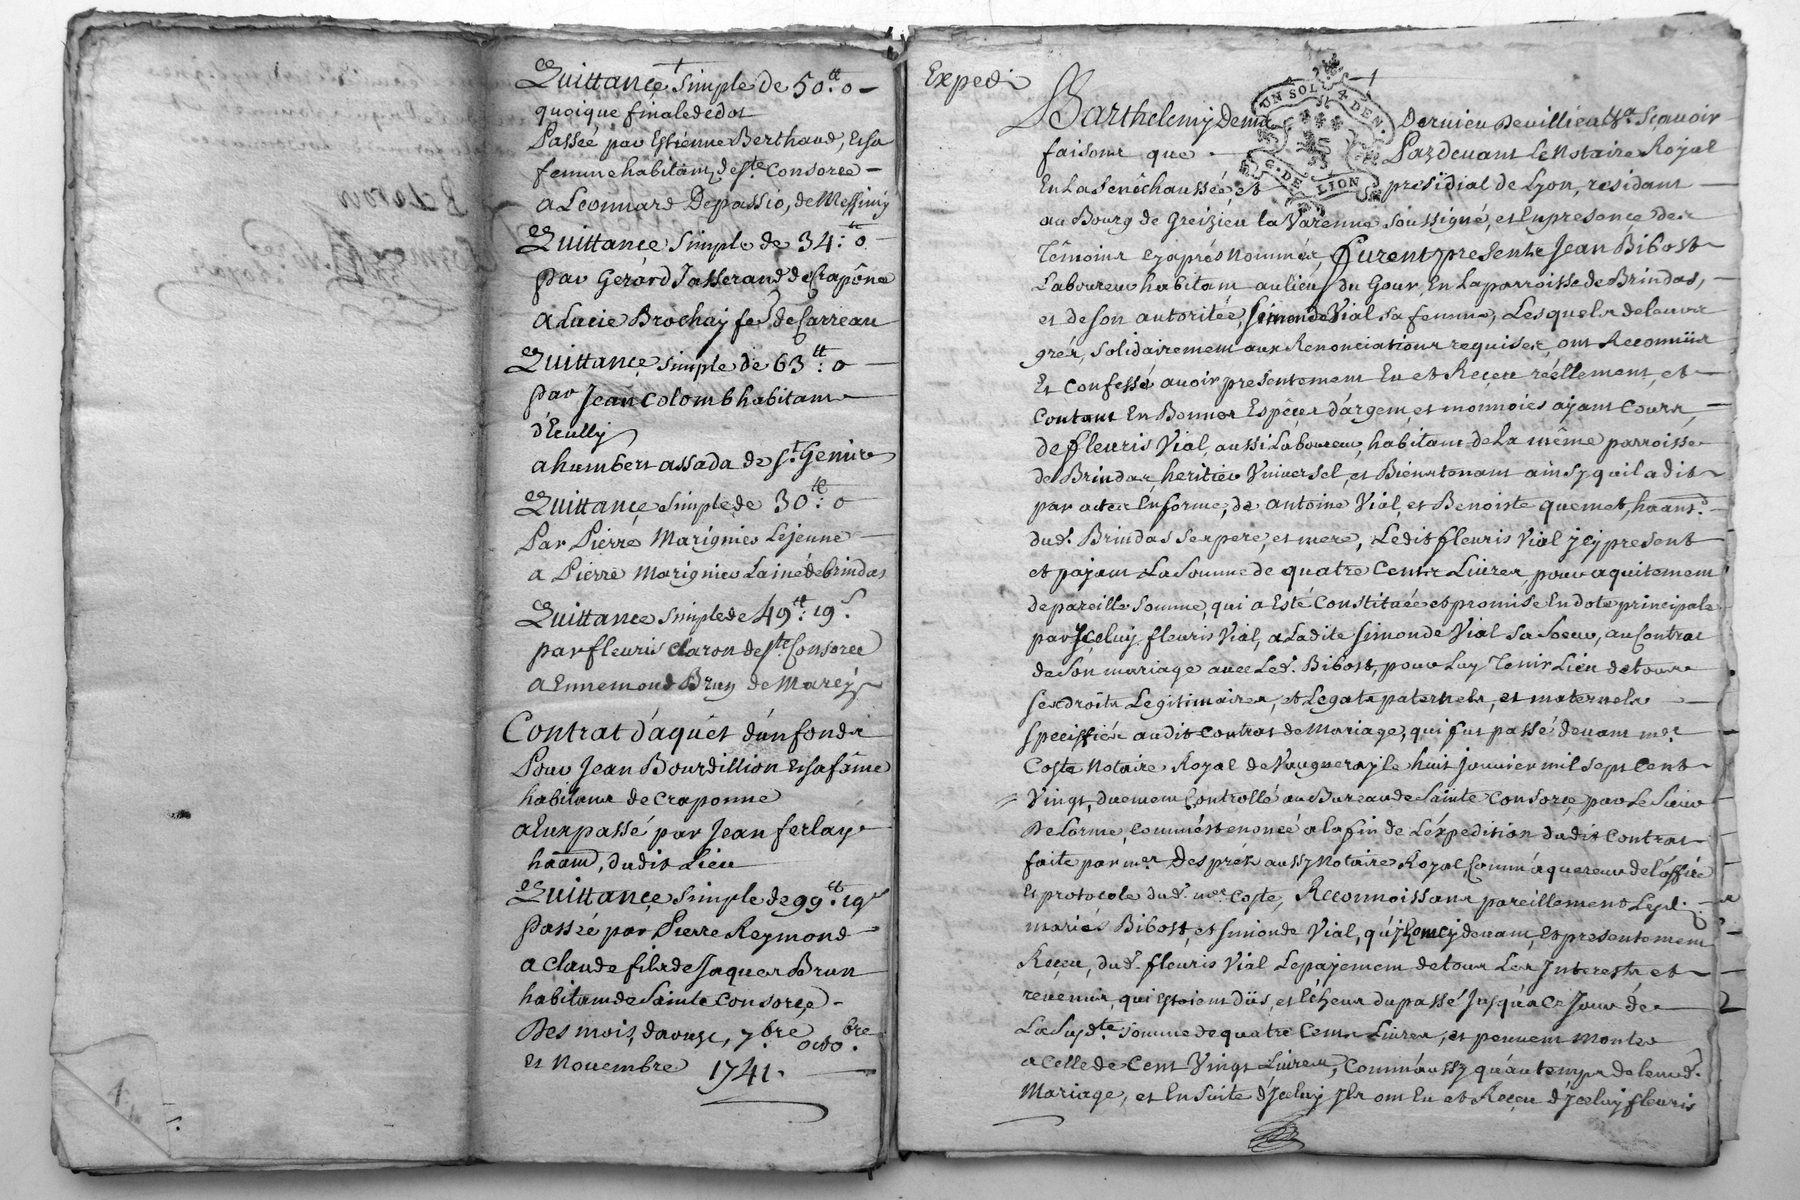 Quittançe simple de 50.tt o
quoique finale de dot
Passée par Estienne Berthaud, et sa
femme habitans de Ste Consorce
a Leonnard Depassio, de Messimy
Quittance simple de 34.tt o
par Gerard Jasserand de Crapône
a Lucie Brochay fe. de Carreau
Quittançe simple de 63.tt o
par Jean Colomb habitant
d'Ecully
a humbert assada de St Genis
Quittançe simple de 30.tt o
Par Pierre Marignier Lejeune
a Pierre Marignier Lainé de brindas
Quittance simple de 49.tt 19.s
par fleuris Claron de Ste Consorce
a Ennemond Brun de Marcy
Contrat d'aquet d'un fonds
Pour Jean Bourdillion et sa fame
habitans de Craponne
a Eux passé par Jean ferlay
haant, dudit Lieu
Quittançe simple de 99.tt 19s
Passée par Pierre Reymond
a Claude fils de Jaques Brun
habitant de Sainte Consorçe
Des mois, d'aoust, 7.bre octo.bre
et Novembre 1741.
Expedié
Barthelemy Dernieu Devillieu
UN SOL 4 DEN.
G. DE LION
Sçavoir
faisons que Pardevant Le Notaire Royal
En La Senéchaussée et presidial de Lyon, residant
au Bourg de Greizieu la Varenne soussigné, et En presence des
Témoins cy aprés Nommés, furent presents Jean Bibost
Laboureur habitant au lieu du Gour En La parroisse de Brindas,
et de son autorité, Simonde Vial sa femme, Lesquels de leurs
grés, solidairement aux Renonciations requises, ont Reconnus
Et Confessé avoir presentement Eu et Reçeu réellement, et
Contant En Bonnes Espêces d'argent, et monnoies ayant Cours,
de fleuris Vial, aussi Laboureur, habitant de La même parroisse
de Brindas heritier Vniversel, et Bientenant ainsy quil a dit
par actes En forme, de antoine Vial, et Benoiste quemet, haant.s
dud. Brindas ses pere, et mere, Ledit fleuris Vial jcy present
et payant La Somme de quatre Cents Livres, pour aquitement
de pareille Somme, qui a Esté Constituée et promise En dote principale
par Jceluy fleuris Vial, a Ladite Simonde Vial sa Soeur, au Contrat
de Son mariage avec Led. Bibost, pour Luy Tenir Lieu de tous
ses droits Legitimaires, et Legats paternels, et maternels
speciffiés audit Contrat de Mariage, qui fut passé devant mer
Coste Notaire Royal de Vaugneray le huit janvier mil sept Cent
Vingt, duement Controllé au Bureau de Sainte Consorce, par Le Sieur
Delorme, Comme est enoncé a la fin de L'éxpedition dudit Contrat
faite par mer Després aussy Notaire Royal, Comme aquereur de l'office
Et protocole dud. mer Coste, Reconnoissant pareillement Lesd.
mariés Bibost, et Simonde Vial, qu'ils ont cy devant, Et presentement
Reçeu, dud. fleuris Vial Le payement de tous Les Interests et
revenus, qui Estoient dûs, et Echeus du passé Jusqu'a Ce Jour de
La Susdte. Somme de quatre Cents Livres, et peuvent Monter
a Celle de Cent Vingt Livres, Comm'aussy qu'au temps de leurd.
Mariage, et En Suite d'Jceluy Jls ont Eu et Reçeu d'Jceluy fleuris